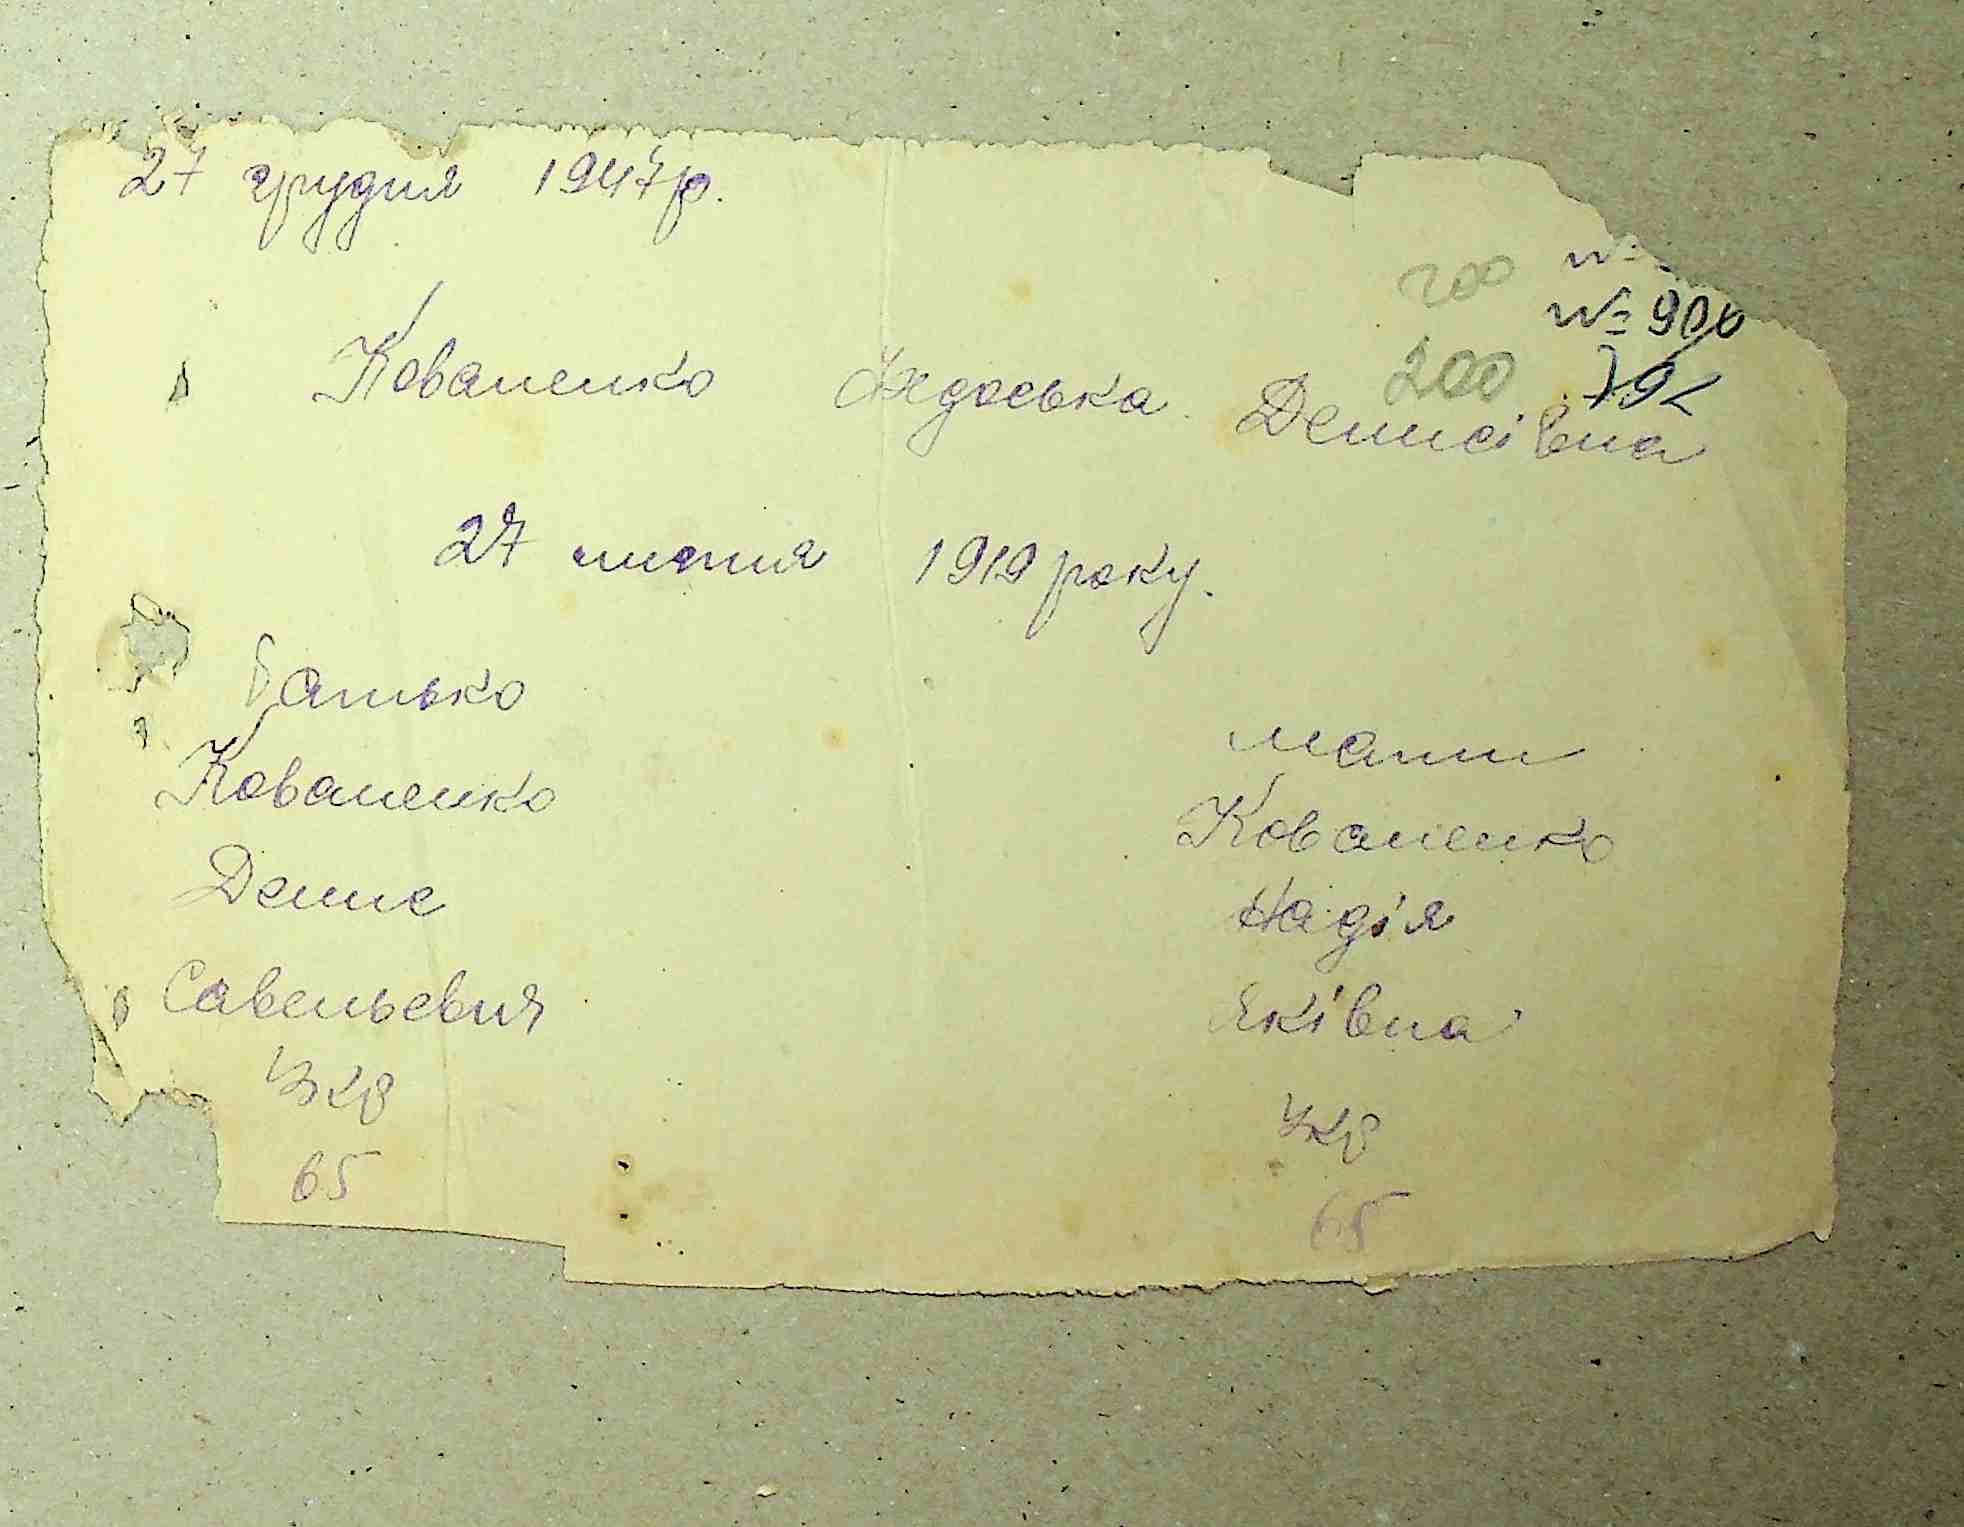 27 грудня 1947р.
200 №
№ 900
200
Коваленко Федоська Денисівна
27 липня 1919 року.
батько
мати
Коваленко
Коваленко
Денис
Надія
Савельевич
Яківна
Укр
Укр
65
65